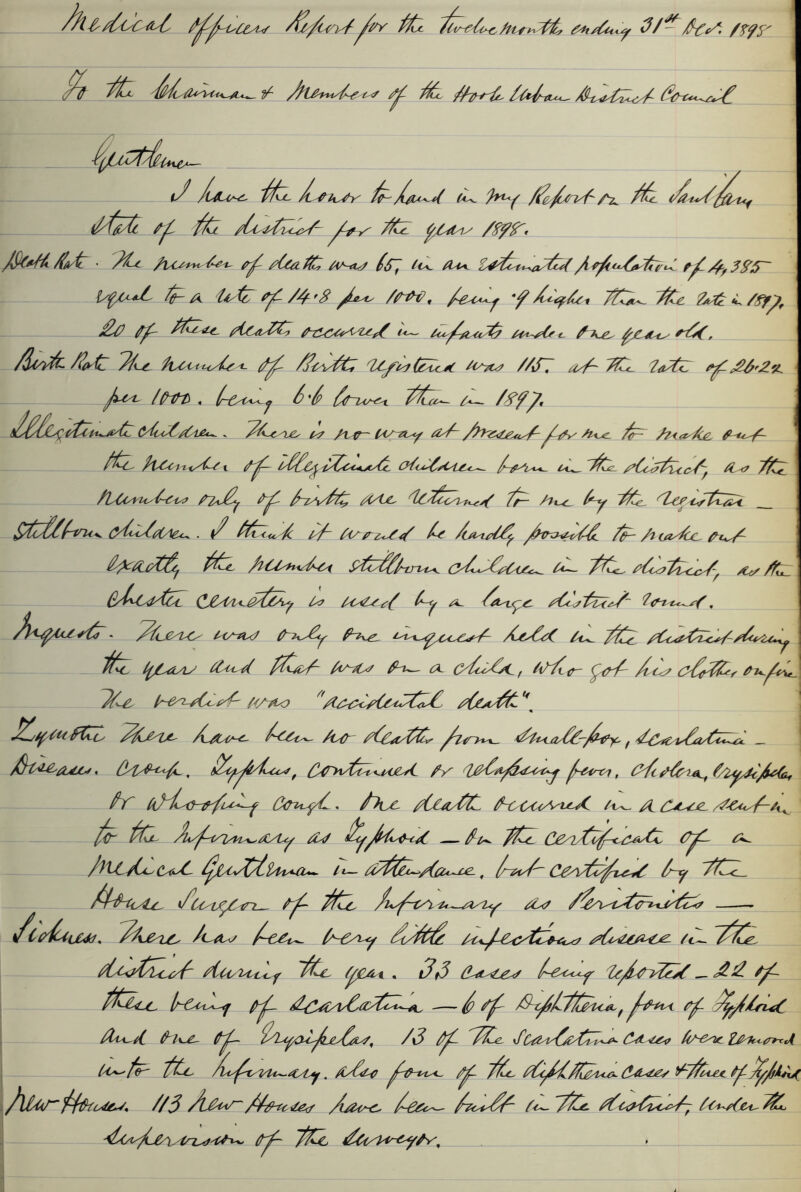 Medical officers Report for the twelve months ending 31st Decr. 1898
To the Chairman & Members of the Hoole Urban District Council
Gentlemen
I have the honor to hand in my Report on the Sanitary
state of the district for the year 1898.
Death Rate. The number of deaths was 65, in an estimated population of 4,385
equal to a rate of 14.8 per 1000. being .9 higher than the rate in 1897.
20 of these deaths occurred in infants under one year old.
Birth Rate The number of Births registered was 115. at the rate of 26.22
per 1000. being 6.6 lower than in 1897.
Illegitimate children. There is no way at present for me to make out
the number of illegitimate children born in the district, as the
numbers only of births are returned to me by the registrar —
Stillborn children. I think it would be hardly possible to make out
exactly the number stillborn children in the district, as the
Chester cemetery is used by a large district round.
Inquests. There was only one inquest held in the district during
the year and that was on a child, who got his clothes on fire
The verdict was "accidental death".
Zymotic There have been no deaths from small-pox, scarlatina –
Diseases. croup. Typhus, continued or relapsing fever, cholera, Erysipelas
or whooping cough. One death occurred in a case sent in
to the Infirmary as Typhoid — on the certificate of a
Medical Gentleman in attendance, but certified by the
House Surgeon of the Infirmary as Peritonitis —
Sickness. There has been very little infectious disease in the
district during the year. 33 cases being reported – 22 of
these being of scarlatina – 6 of Diphtheria, four of Typhoid
and one of Erysipelas. 13 of the Scarlatina cases were removed
into the Infirmary. also four of the diphtheria cases & three of Typhoid
New Houses. 113 New Houses have been built in the district, under the
supervision of the surveyor.